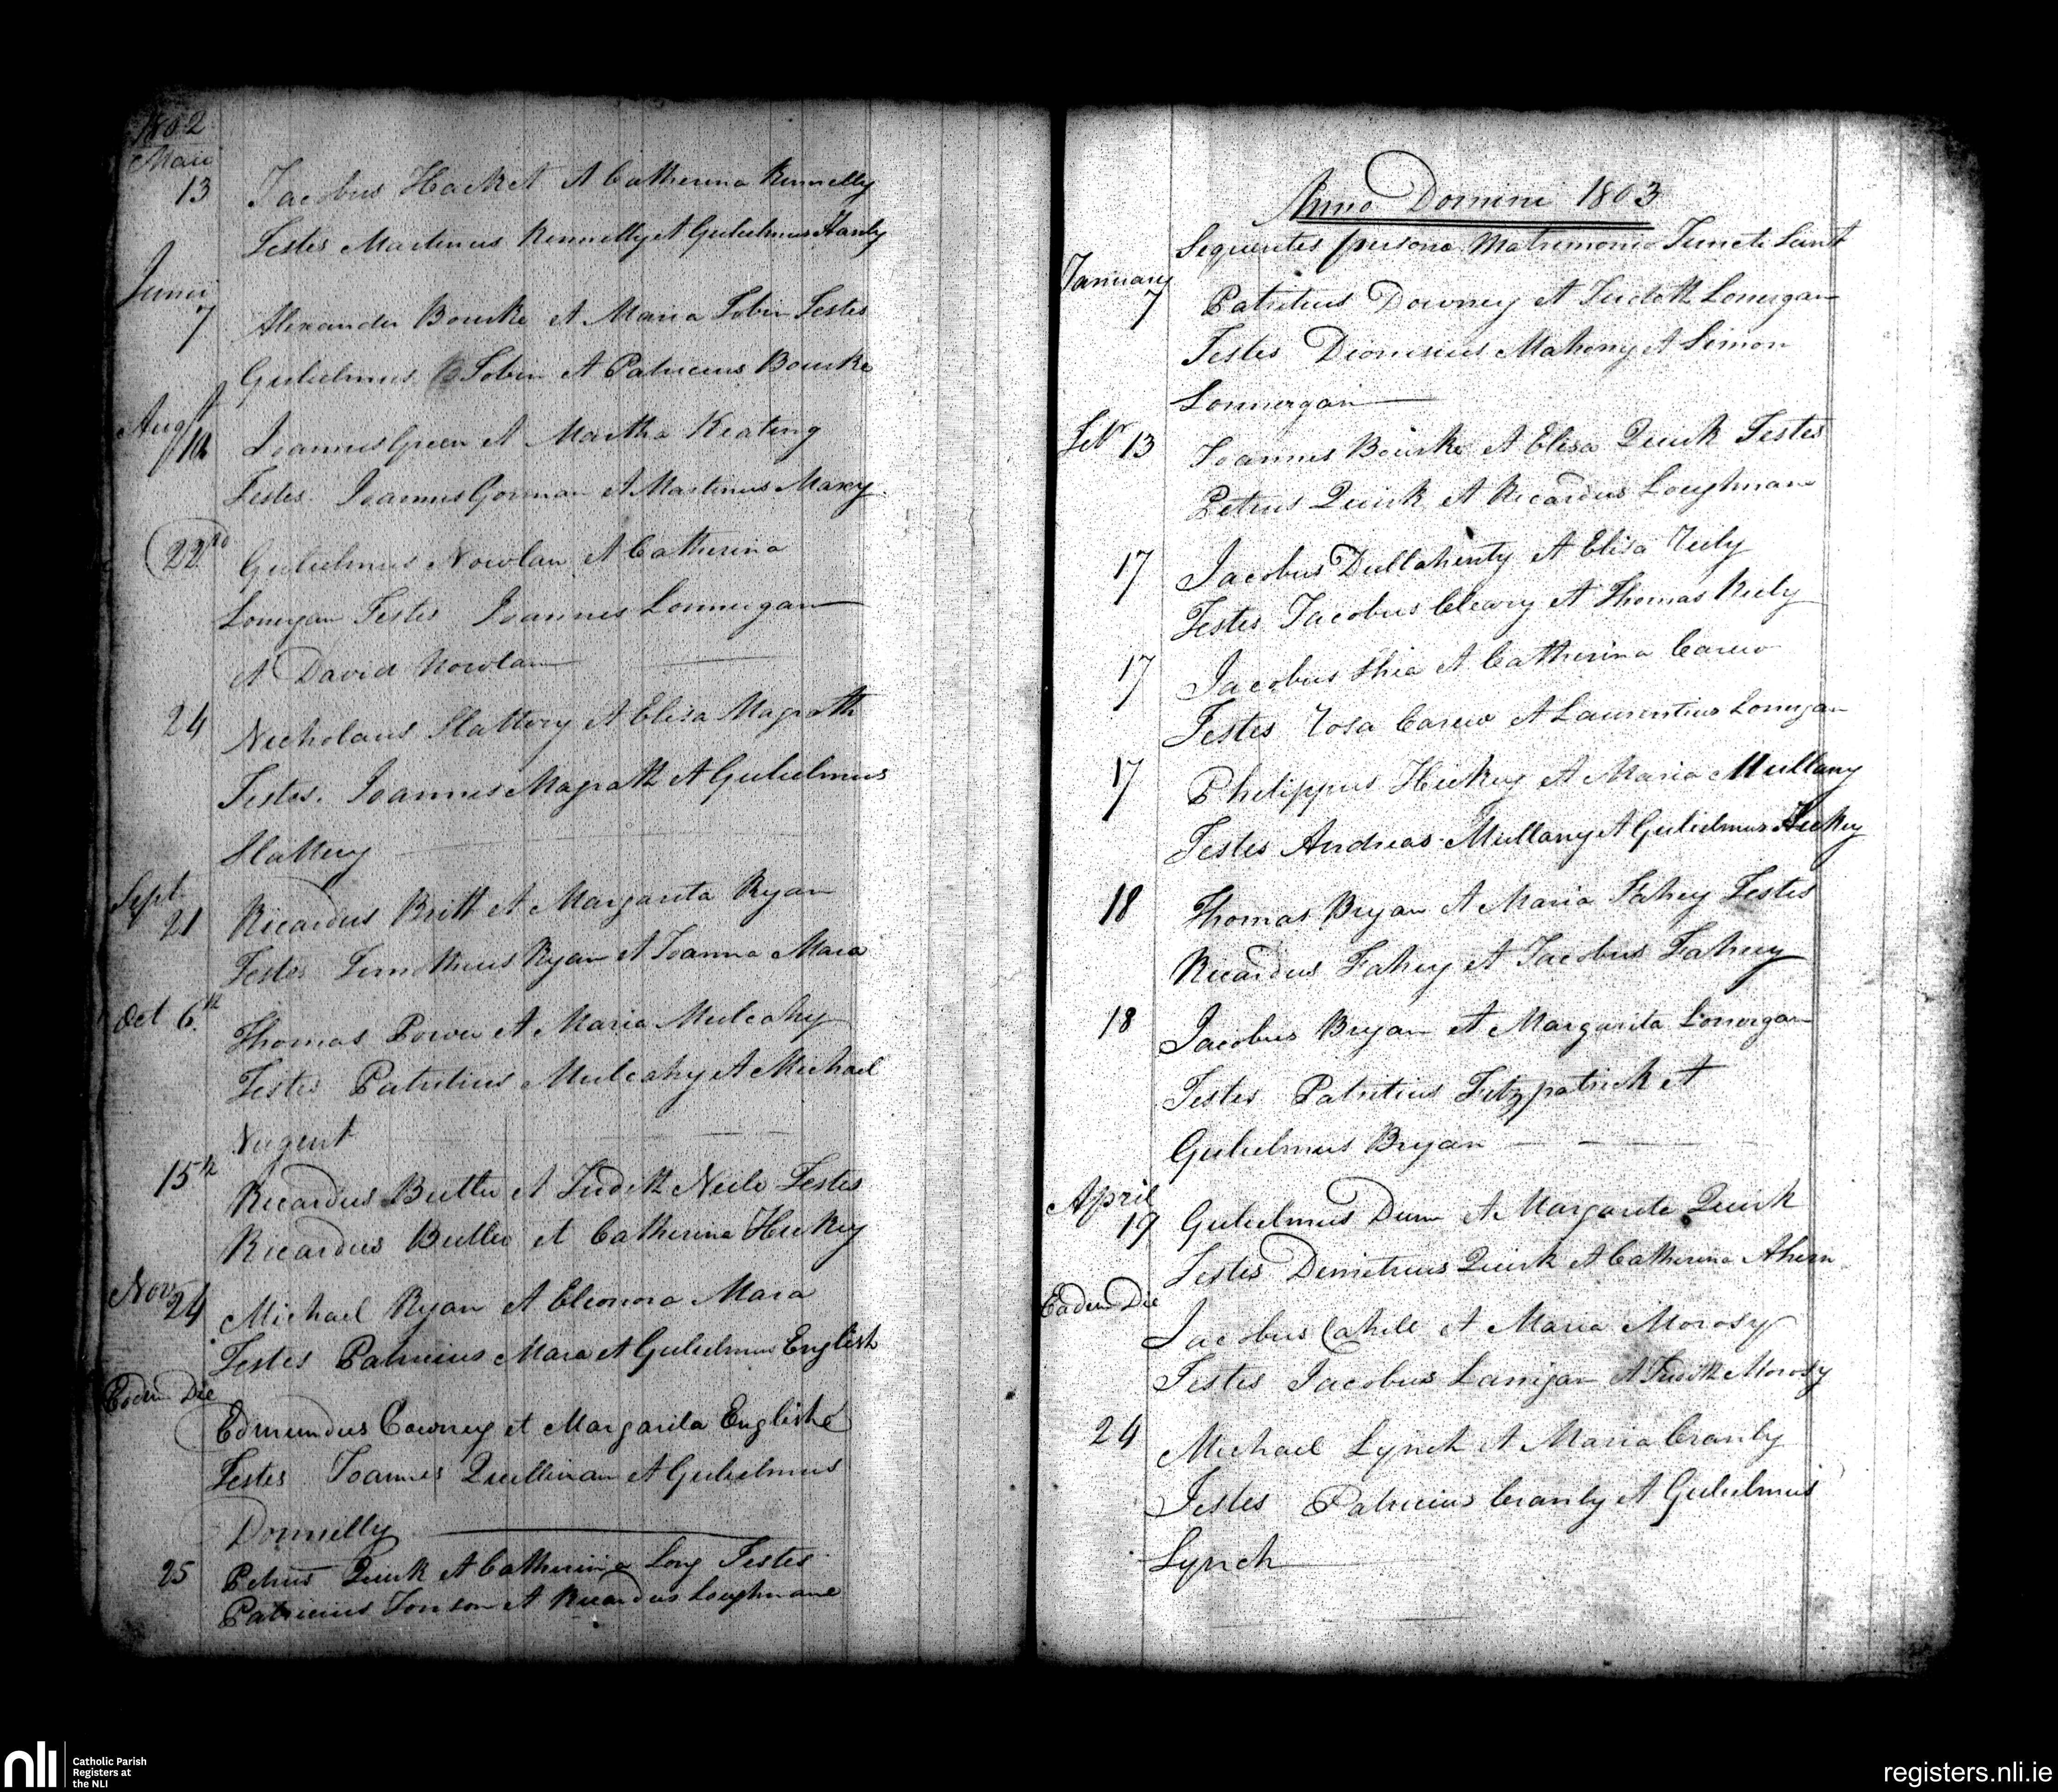 1802
Maii
13 Jacobus Hacket et Catherina Kennelly
Testes Martinus Kennelly et Gulielmus Hanly
Junii
7 Alexander Bourke et Maria Tobin Testes
Gulielmus Tobin et Patricius Bourke
Augt
Joannes Green et Martha Keating
Testes. Joannes Gorman et Martinus
22nd Gulielmus Nowlan et Catherina
Lonergan Testes Joannes Lonnergan
et David Nowlan
24 Nicholaus Slattery et Elisa Magrath
Testes. Joannes Magrath et Gulielmus
Slattery
Sept.
21 Ricardus Britt et Margarita Ryan
Testes Timotheus Ryan et Joanna Mara
Oct 6.th
Thomas Power et Maria Mulcahy
Testes Patritius Mulcahy et Michael
Nugent
15th
Ricardus Butler et Judith Neile Testes
Ricardus Butler et Catherina Hickey
Nov
24 Michael Ryan et Eleonora Mara
Testes Patricius Mara et Gulielmus English
Eodem Die
Edmundus et Margarita English
Testes Joannes Quillinan et Gulielmus
Donnelly
25 Petrus Quirk et Catherina Long Testes
Patricius et Ricardus Loughmane
Anno Domini 1803
Sequentes persone Matrimonio Juncti Sunt
January
7 Patritius Downey et Judith Lonergan
Testes Dionisius Mahony et Simon
Lonnergan
Febr 13 Joannes Bourke et Elisa Quirk Testes
Petrus Quirk et Ricardus Loughmane
17 Jacobus Dullahenty et Elisa
Testes Jacobus Cleary et Thomas
17 Jacobus Shea et Catherina Carew
Testes Rosa Carew et Laurentius Lonergan
17 Philippus Hickey et Maria Mullany
Testes Andreas Mullany et Gulielmus Hickey
18 Thomas Bryan et Maria Fahey Testes
Ricardus Fahey et Jacobus Fahey
18 Jacobus Bryan et Margarita Lonergan
Testes Patritius Fitzpatrick et
Gulielmus Bryan
April
19 Gulielmus Dunn et Margarita Quirk
Testes Demetrius Quirk et Catherina Ahern
Eadem Die
Jacobus Cahill et Maria Morosy
Testes Jacobus Lanigan et Judith Morosy
24 Michael Lynch et Maria Cranly
Testes Patricius Cranly et Gulielmus
Lynch
nli
Catholic Parish
Registers at
the NLI
registers.nli.ie